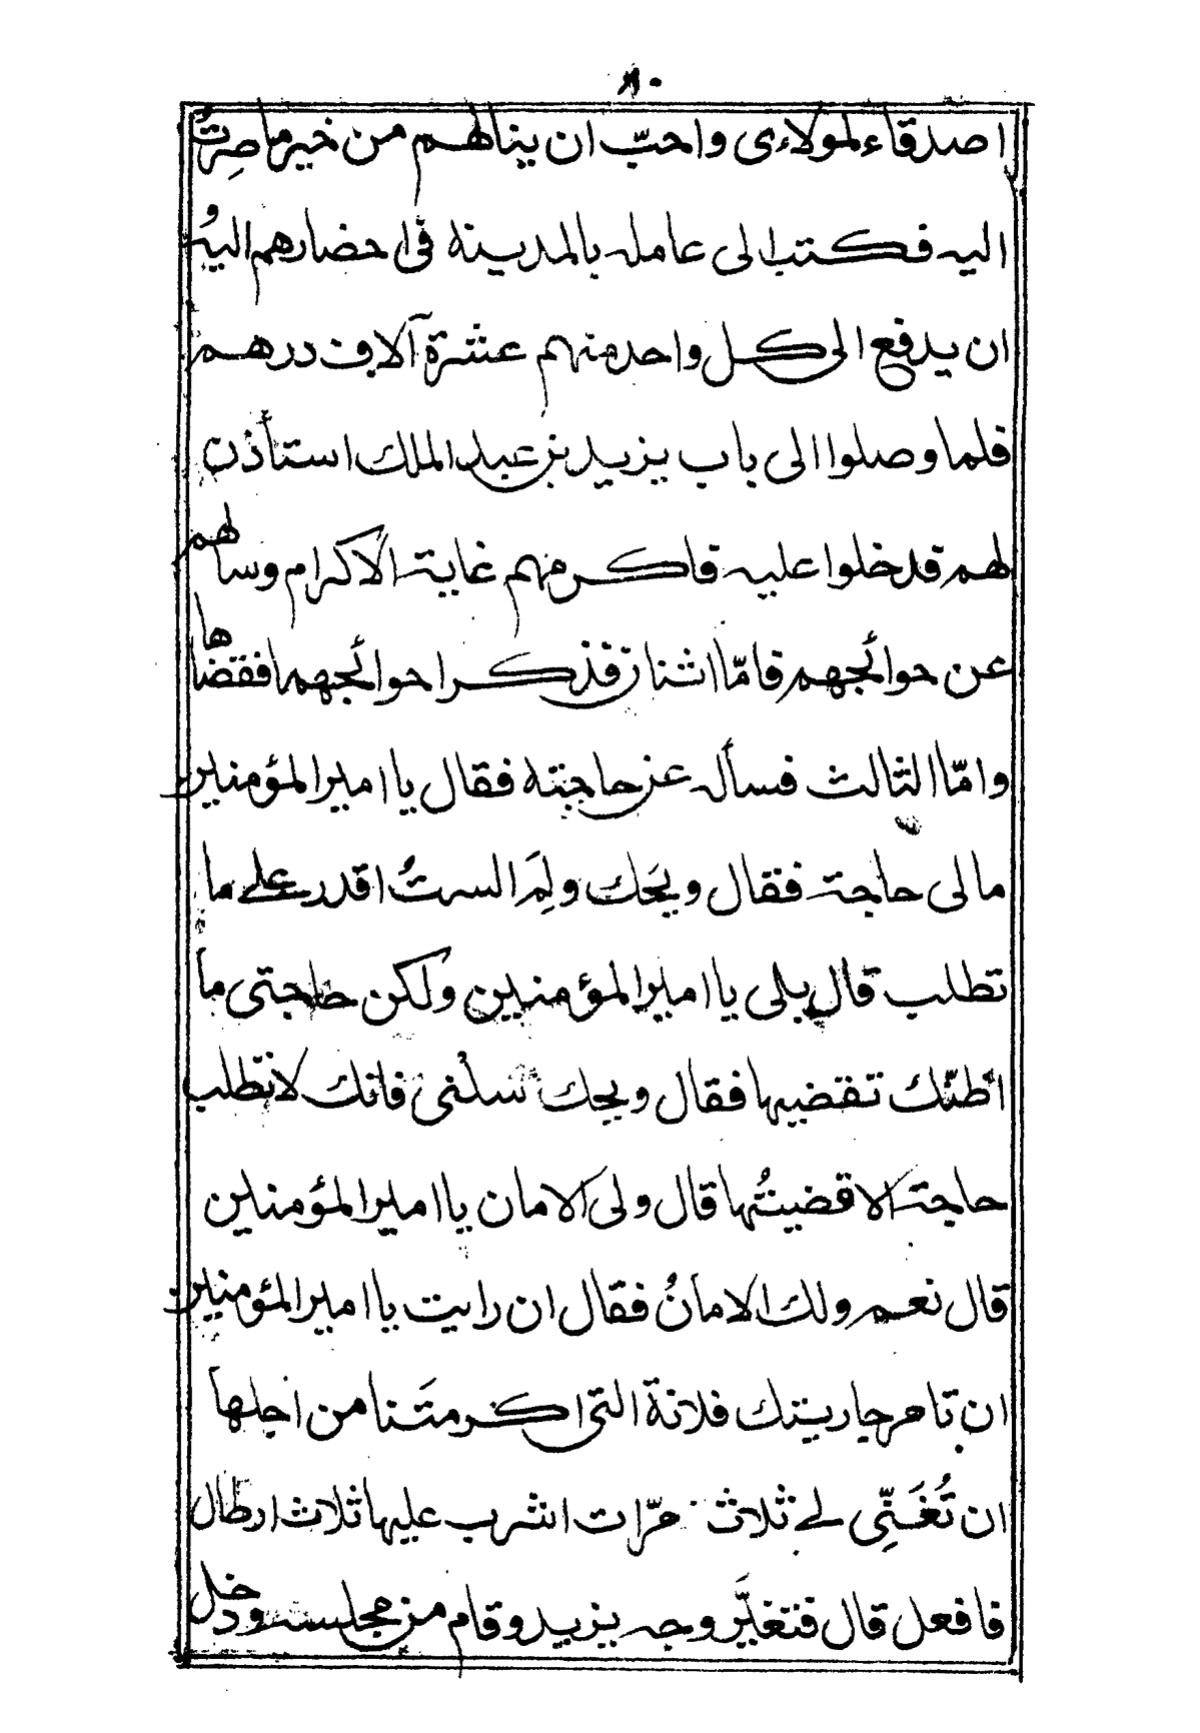 ٨٠
اصدقاء لمولاءى واحبّ ان ينالهم من خير ما صِرتُ
اليه فكتب الى عامله بالمدينة فى احضارهم اليه
ان يدفع الى كل واحد منهم عشرة آلاف درهم
فلما وصلوا الى باب يزيد بن عبد الملك استأذن
لهم قد خلوا عليه فاكرمهم غاية الاكرام وسالهم
عن حوائجهم فامّا اثنان فذكرا حوائجهما فقضاها
وامّا الثالث فسأله عن حاجته فقال يا امير المؤمنين
مالى حاجة فقال ويَحك ولِمَ الستُ اقدر على ما
تطلب قال بلى يا امير المؤمنين ولكن حاجتى ما
اظنّك تقضيها فقال ويحك سلنى فانك لا تطلب
حاجة الا قضيتُها قال ولى الامان يا امير المؤمنين
قال نعم ولك الامانُ فقال ان رايت يا امير المؤمنين
ان تامر جاريتك فلانة التى اكرمتَنا من اجلها
ان تُغَنِّى لى ثلاث مرّات اشرب عليها ثلاث ارطال
فافعل قال فتغيَّر وجه يزيد وقام من مجلسه ودخل